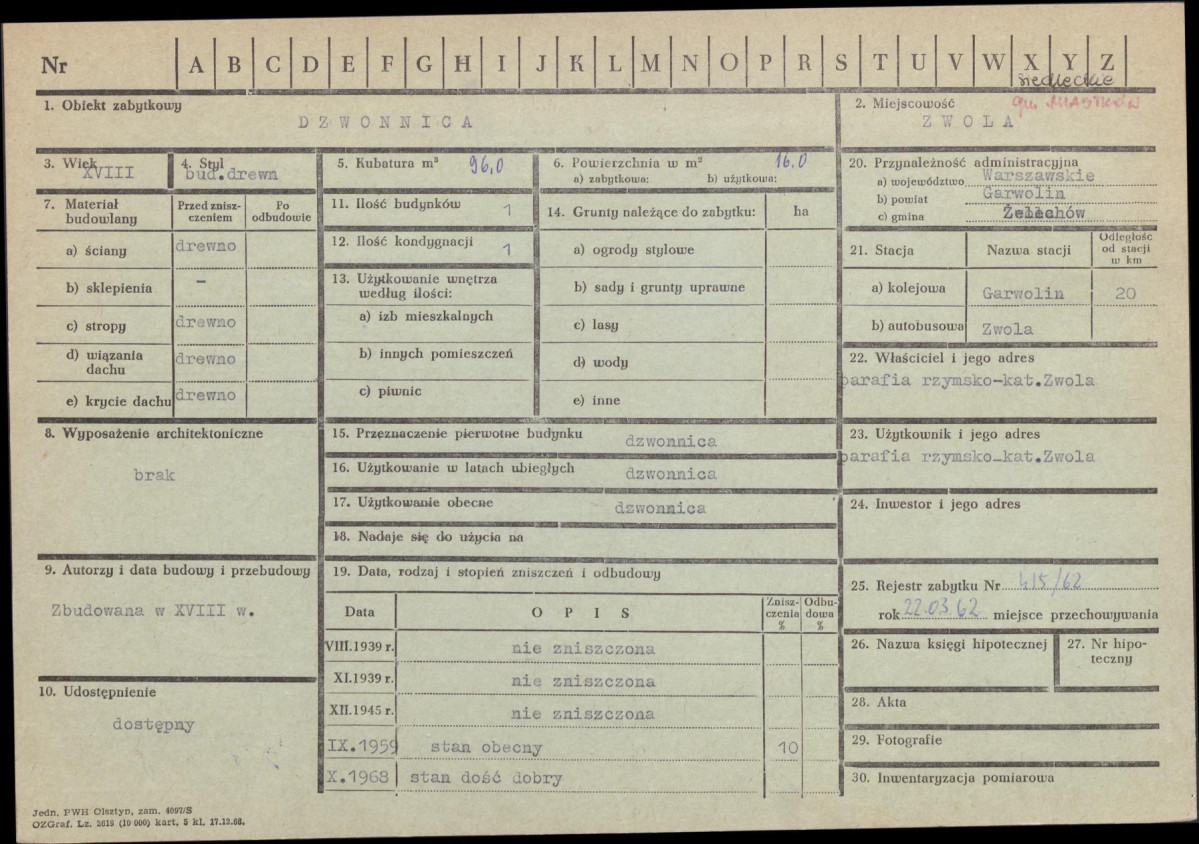 Nr A B C D E F G H I J K L M N O P R S T U V W X Y Z
siedleckie
1. Obiekt zabytkowy
DZWONNICA
2. Miejscowość
gm. MIASTKÓW
ZWOLA
3. Wiek
XVIII
4. Styl
bud.drewn
5. Kubatura m³ 96,0
6. Powierzchnia w m² 16.0
a) zabytkowa: b) użytkowa:
20. Przynależność administracyjna
a) województwo Warszawskie
b) powiat Garwolin
c) gmina Żelechów
7. Materiał budowlany
Przed zniszczeniem
Po odbudowie
a) ściany drewno
b) sklepienia –
c) stropy drewno
d) wiązania dachu drewno
e) krycie dachu drewno
11. Ilość budynków 1
12. Ilość kondygnacji 1
13. Użytkowanie wnętrza
według ilości:
a) izb mieszkalnych
b) innych pomieszczeń
c) piwnic
14. Grunty należące do zabytku: ha
a) ogrody stylowe
b) sady i grunty uprawne
c) lasy
d) wody
e) inne
21. Stacja Nazwa stacji Odległość od stacji w km
a) kolejowa Garwolin 20
b) autobusowa Zwola
22. Właściciel i jego adres
parafia rzymsko-kat.Zwola
8. Wyposażenie architektoniczne
brak
15. Przeznaczenie pierwotne budynku dzwonnica
16. Użytkowanie w latach ubiegłych dzwonnica
17. Użytkowanie obecne dzwonnica
18. Nadaje się do użycia na
23. Użytkownik i jego adres
parafia rzymsko-kat.Zwola
24. Inwestor i jego adres
9. Autorzy i data budowy i przebudowy
Zbudowana w XVIII w.
10. Udostępnienie
dostępny
19. Data, rodzaj i stopień zniszczeń i odbudowy
Data OPIS Zniszczenia % Odbudowa %
VIII.1939 r. nie zniszczona
XI.1939 r. nie zniszczona
XII.1945 r. nie zniszczona
IX.1959 stan obecny 10
X.1968 stan dość dobry
25. Rejestr zabytku Nr 415/62
rok 22.03.62 miejsce przechowywania
26. Nazwa księgi hipotecznej
27. Nr hipoteczny
28. Akta
29. Fotografie
30. Inwentaryzacja pomiarowa
Jedn. PWH Olsztyn, zam. 4097/S
OZGraf. Lz. 2619 (10 000) kart. 5 kl. 17.12.66.